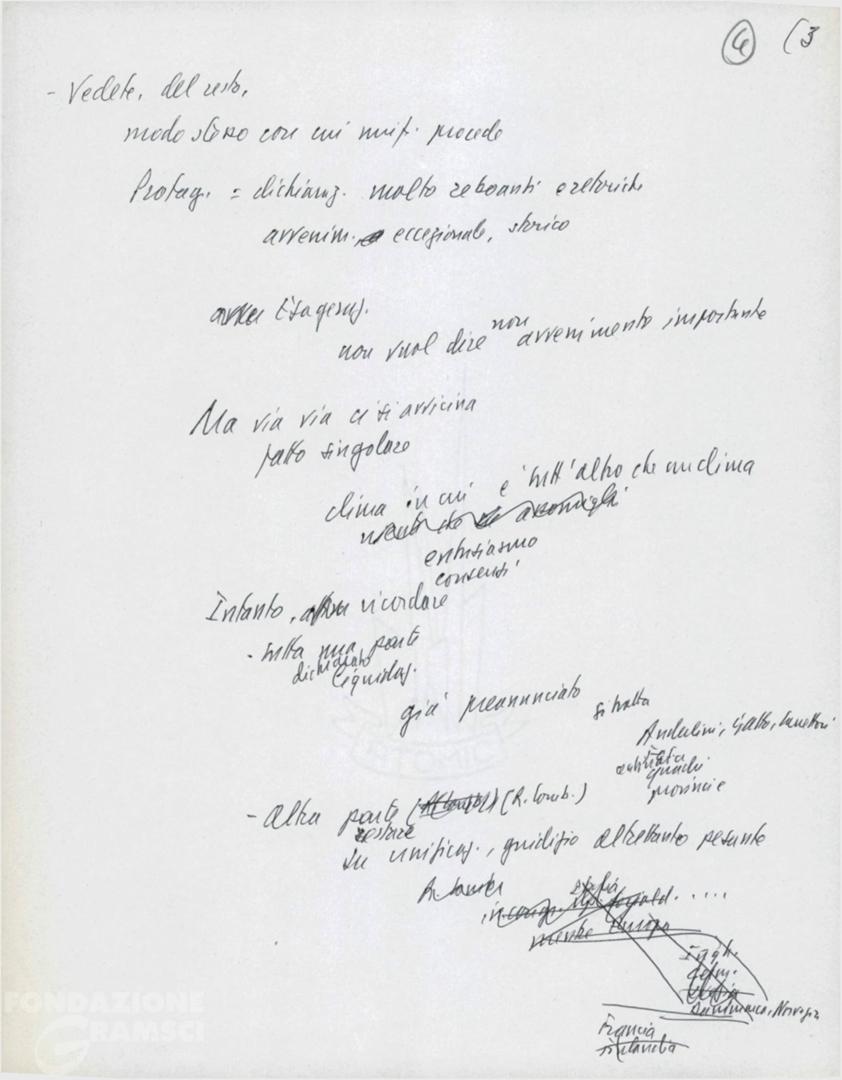 4 (3
- Vedete, del resto,
modo stesso con cui unif. procede
Protag. = dichiaraz. molto reboanti e retoriche
avvenim. eccezionale, storico
Esageraz.
non vuol dire non avvenimento importante
Ma via via ci si avvicina
fatto singolare
clima in cui è tutt'altro che un clima
entusiasmo
consensi
Intanto, ricordare
- tutta una parte
dichiarato
liquidaz.
già preannunciato
si tratta
Anderlini, Gatto,
quadri
provincie
- Altra parte (R. Lomb.)
restare
su unificaz., giudizio altrettanto pesante
Italia
mentre Europa
Ingh.
Germ.
Danimarca, Norvegia
Francia
Finlandia
FONDAZIONE
GRAMSCI